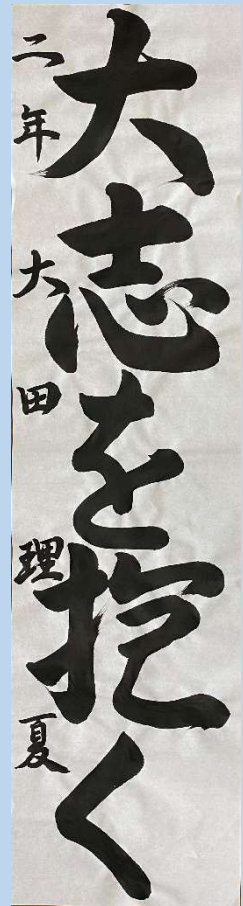 大志を抱く
二年 大田 理夏